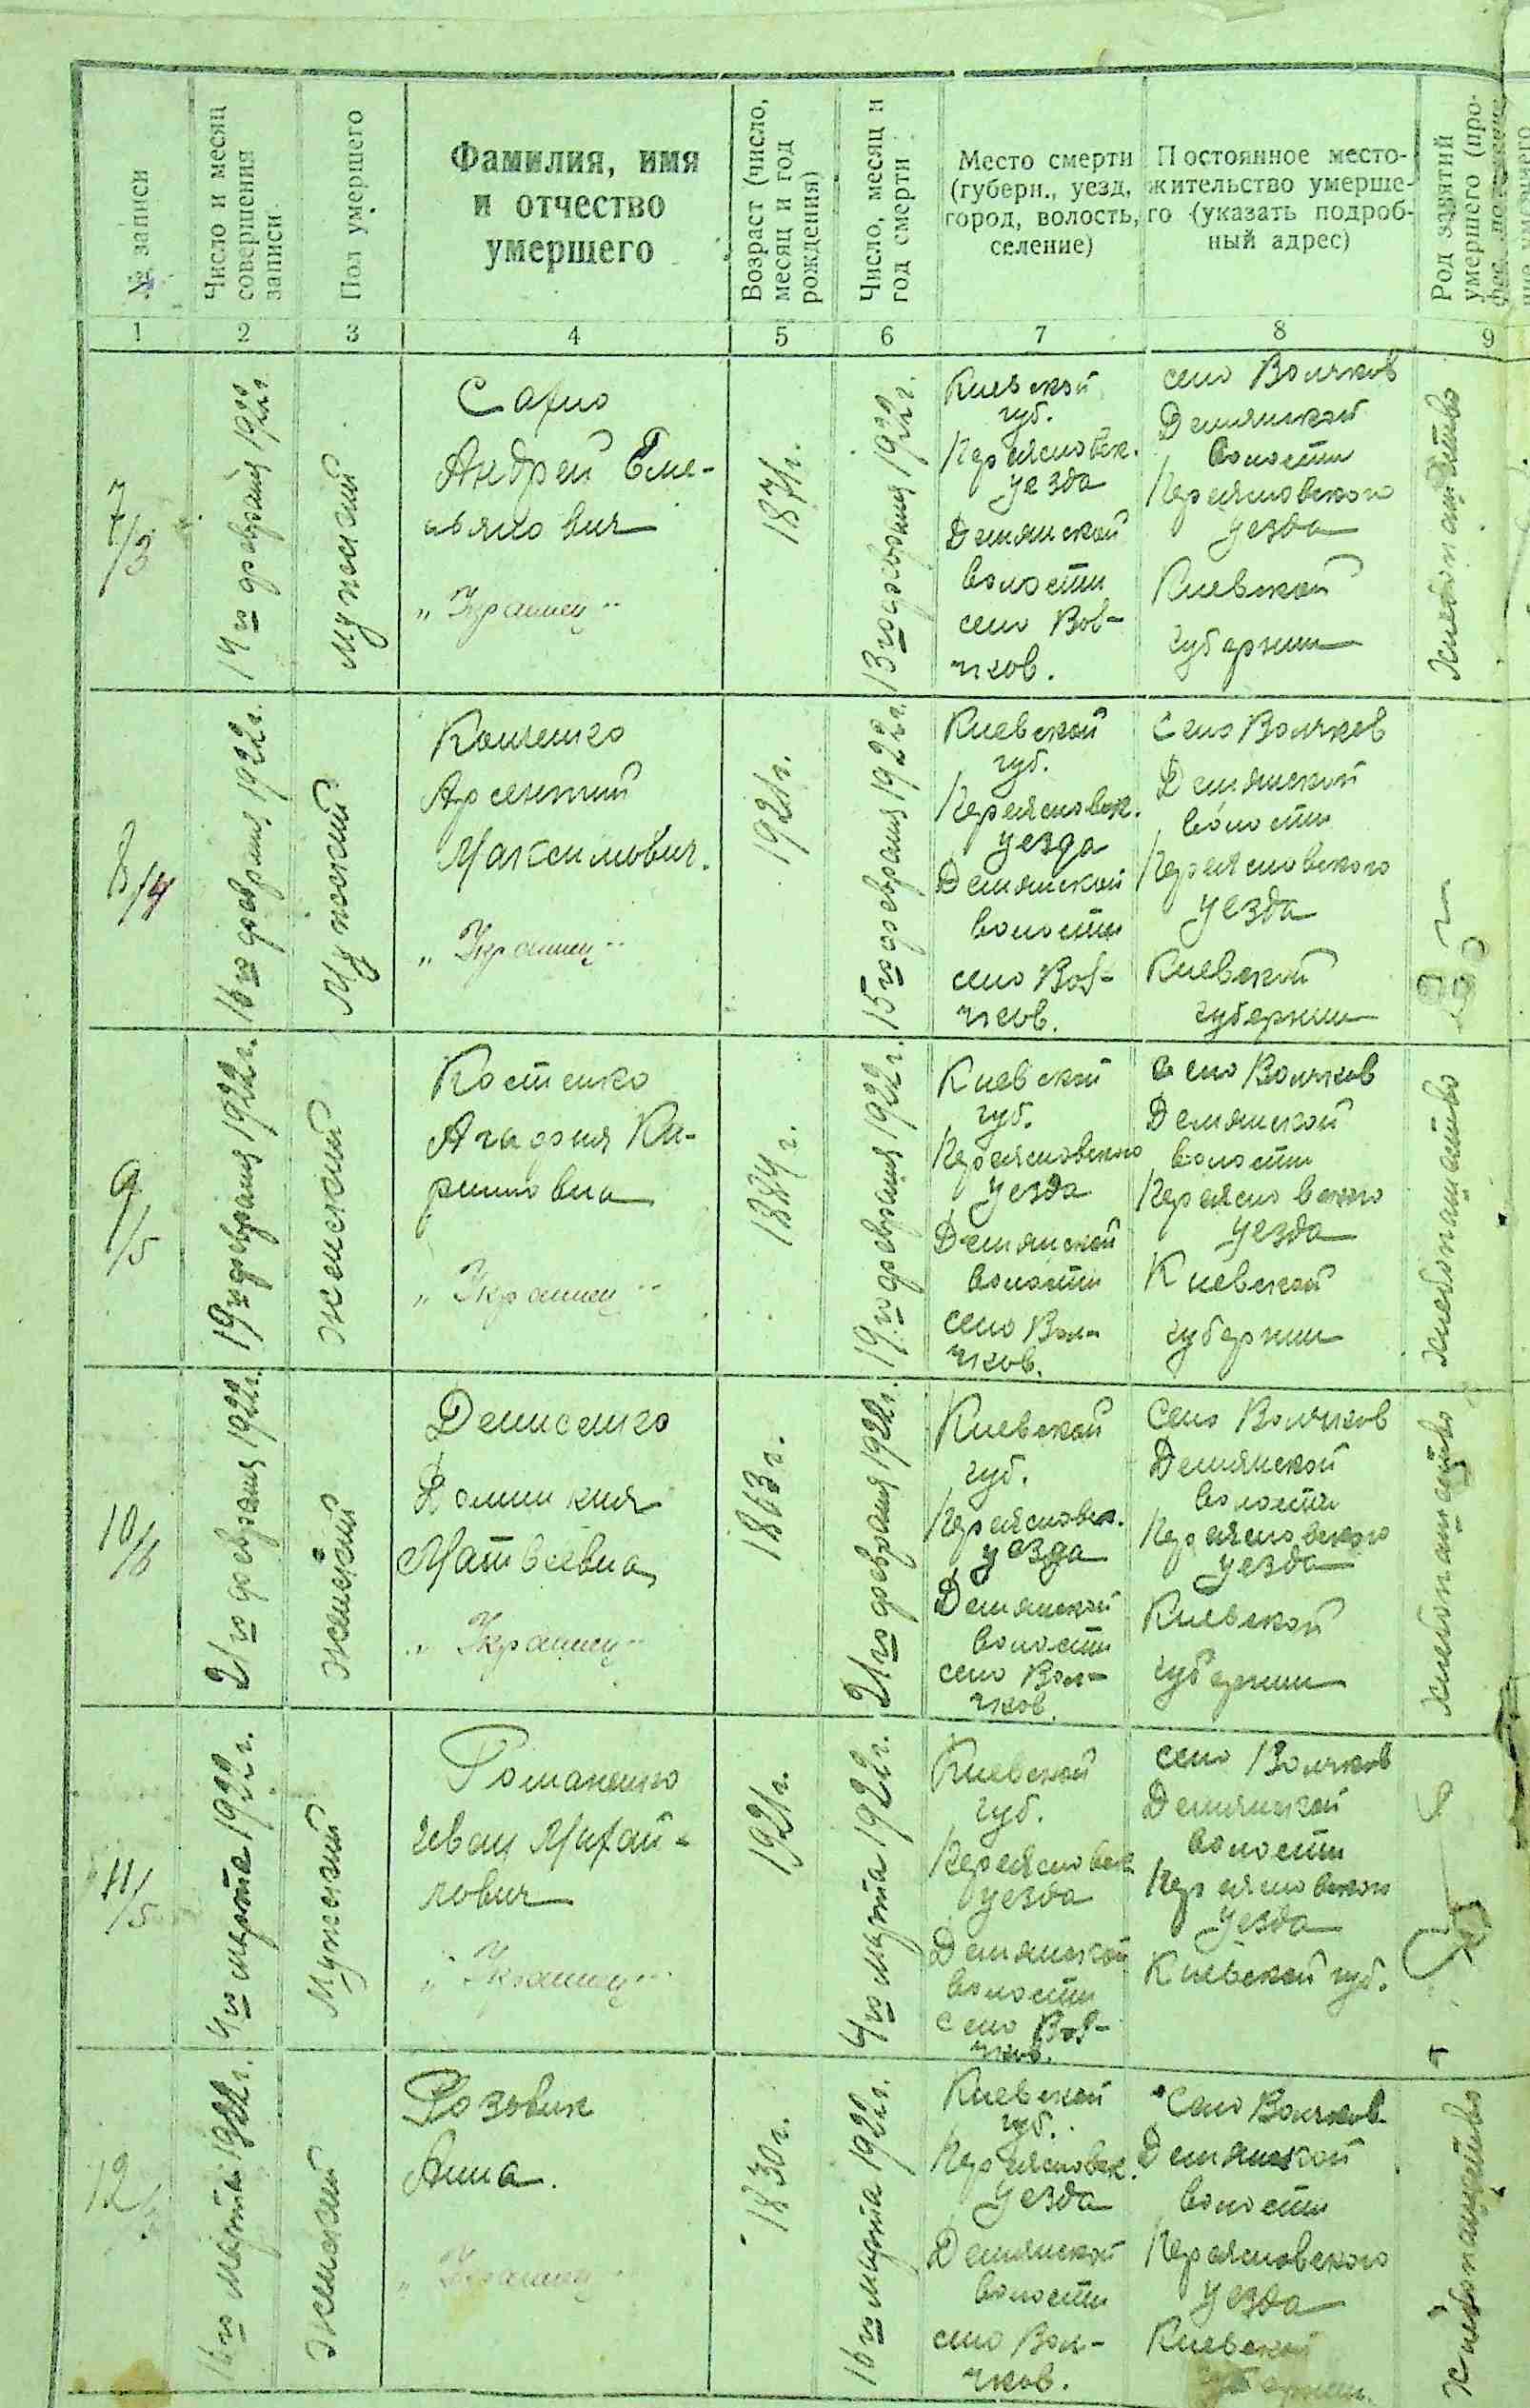 № записи
Число и месяц
совершения
записи
Пол умершего
Фамилия, имя
и отчество
умершего
Возраст (число,
месяц и год
рождения)
Число, месяц и
год смерти
Место смерти
(губерн., уезд,
город, волость,
селение)
Постоянное место-
жительство умерше-
го (указать подроб-
ный адрес)
Род занятий
умершего (про-
1 2 3 4 5 6 7 8 9
7/3
14го февраля 1922 г.
Мужской
Сафно
Андрей Еме-
льянович
„Украинец“
1871 г.
13го февраля 1922 г.
Киевской
губ.
Переясловск.
уезда
Демянской
волости
село Вов-
чков.
село Волчков
Демянской
волости
Переясловского
уезда
Киевской
губернии
хлебопашество
8/4
16го февраля 1922 г.
Мужской
Арсентий
Максимович.
„Украинец“
1921 г.
15го февраля 1922 г.
Киевской
губ.
Переясловск.
уезда
Демянской
волости
село Вов-
чков.
Село Волчков
Демянской
волости
Переясловского
уезда
Киевской
губернии
9/5
19го февраля 1922 г.
женский
Костенко
Агафия Ки-
рилловна
„Украинец“
1884 г.
19го февраля 1922 г.
Киевской
губ.
Переясловского
уезда
Демянской
волости
село Вол-
чков.
село Волчков
Демянской
волости
Переясловского
уезда
Киевской
губернии
хлебопашество
10/6
21го февраля 1922 г.
женский
Денисенко
Матвеевна
„Украинец“
1863 г.
21го февраля 1922 г.
Киевской
губ.
Переясловск.
уезда
Демянской
волости
село Вол-
чков.
Село Волчков
Демянской
волости
Переясловского
уезда
Киевской
губернии
хлебопашество
11/5
4го марта 1922 г.
Мужской
Романенко
Иван Михай-
лович
„Украинец“
1921 г.
4го марта 1922 г.
Киевской
губ.
Переясловск
уезда
Демянской
волости
село Вов-
чков.
село Волчков
Демянской
волости
Переясловского
уезда
Киевской губ.
12
16го марта 1922 г.
женский
Розовик
Анна.
„Украинец“
1830 г.
16го марта 1922 г.
Киевской
губ.
Переясловск.
уезда
Демянской
волости
село Вол-
чков.
Село Волчков
Демянской
волости
Переясловского
уезда
Киевской
губернии.
хлебопашество